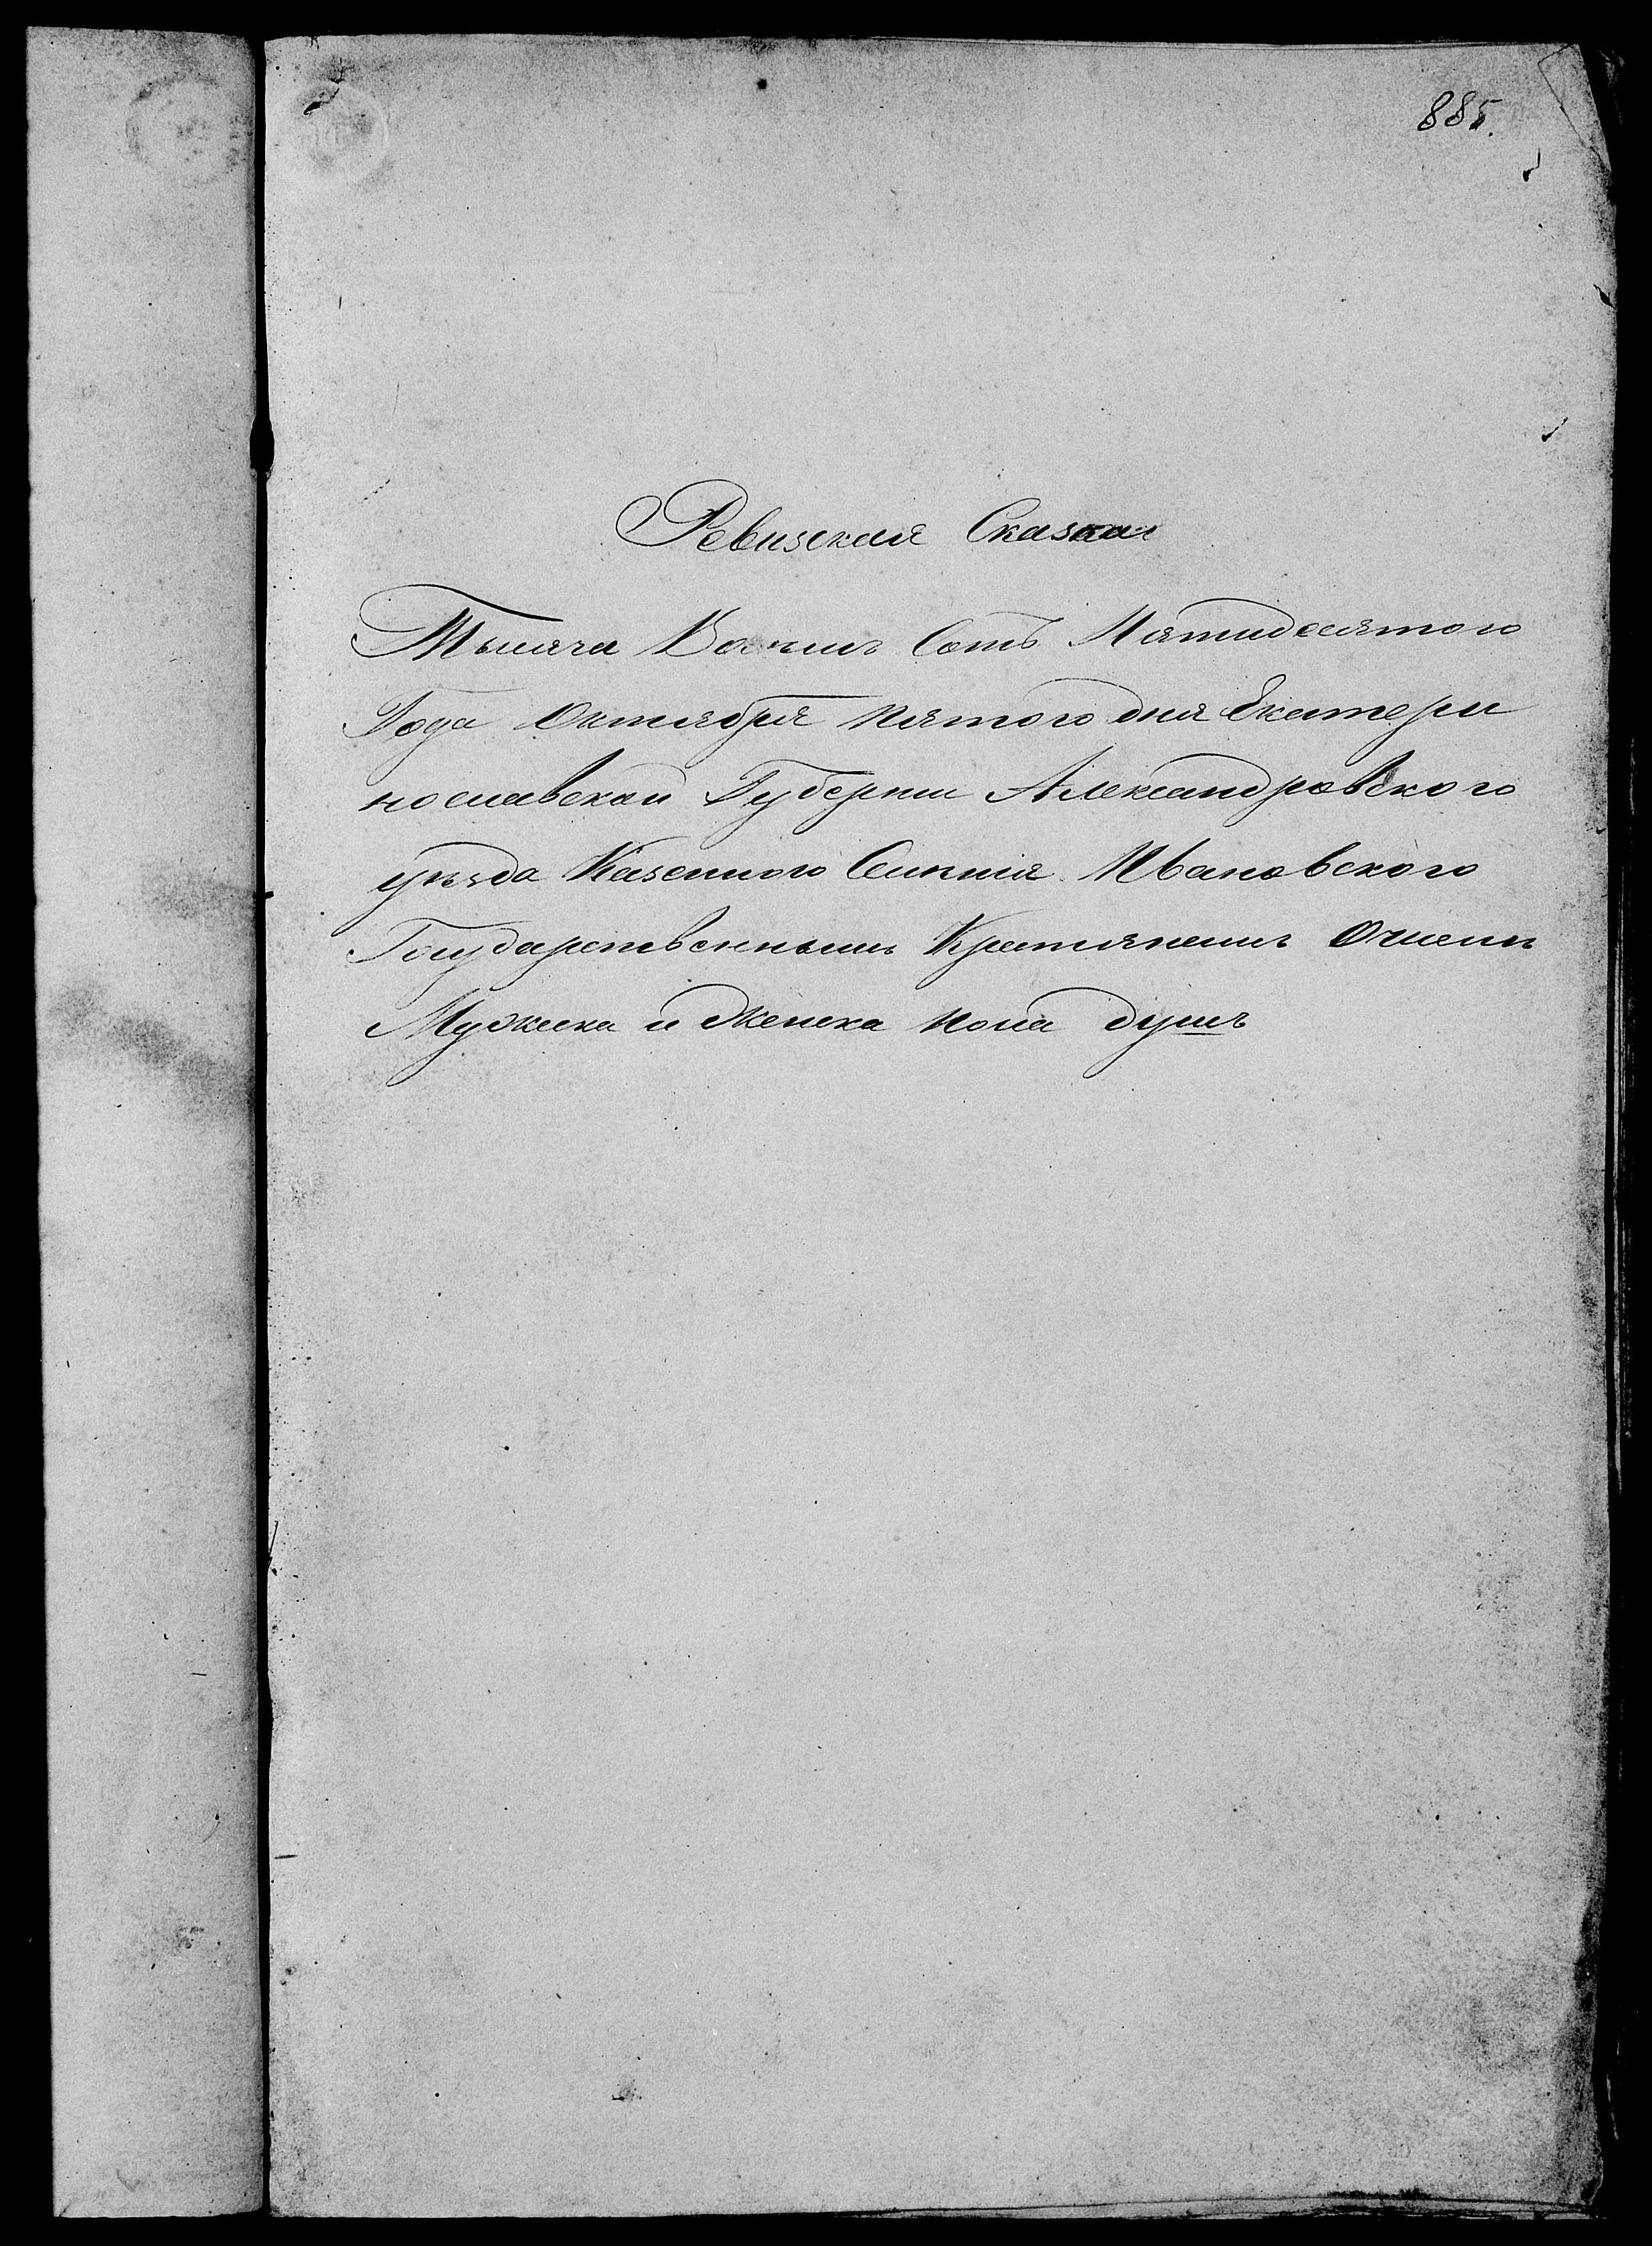 885.
Ревизская Сказка
Тысяча Восемь Сотъ Пятидесятого
Года Октября пятого дня Екатери
нославской Губернии Александровского
уѣзда Казенного Селения Ивановского
Государственнымъ Крестянемъ О числѣ
Мужеска и Женска пола душъ